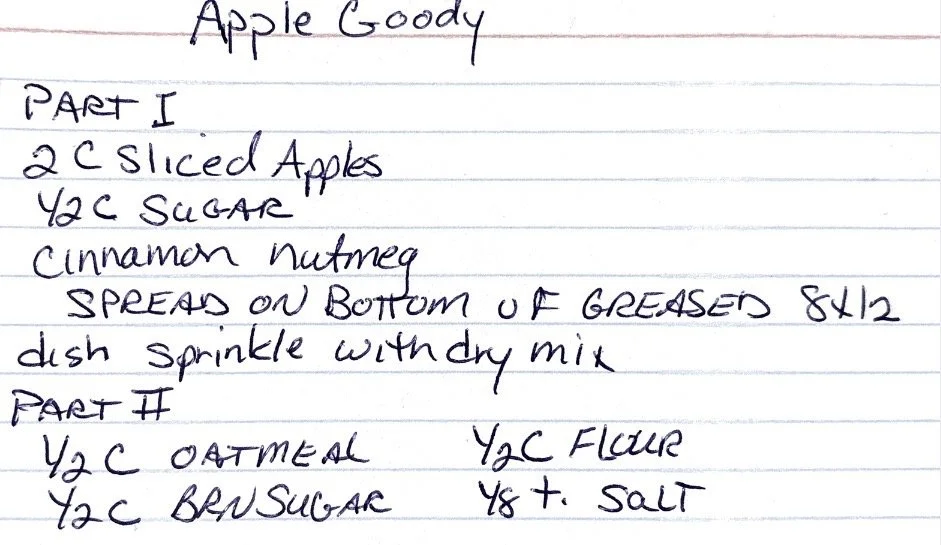 Apple Goody
PART I
2 C Sliced Apples
1/2 C SUGAR
cinnamon nutmeg
SPREAD ON BOTTOM OF GREASED 8x12
dish sprinkle with dry mix
PART II
1/2 C OATMEAL 1/2 C FLOUR
1/2 C BRN SUGAR 1/8 t. SALT